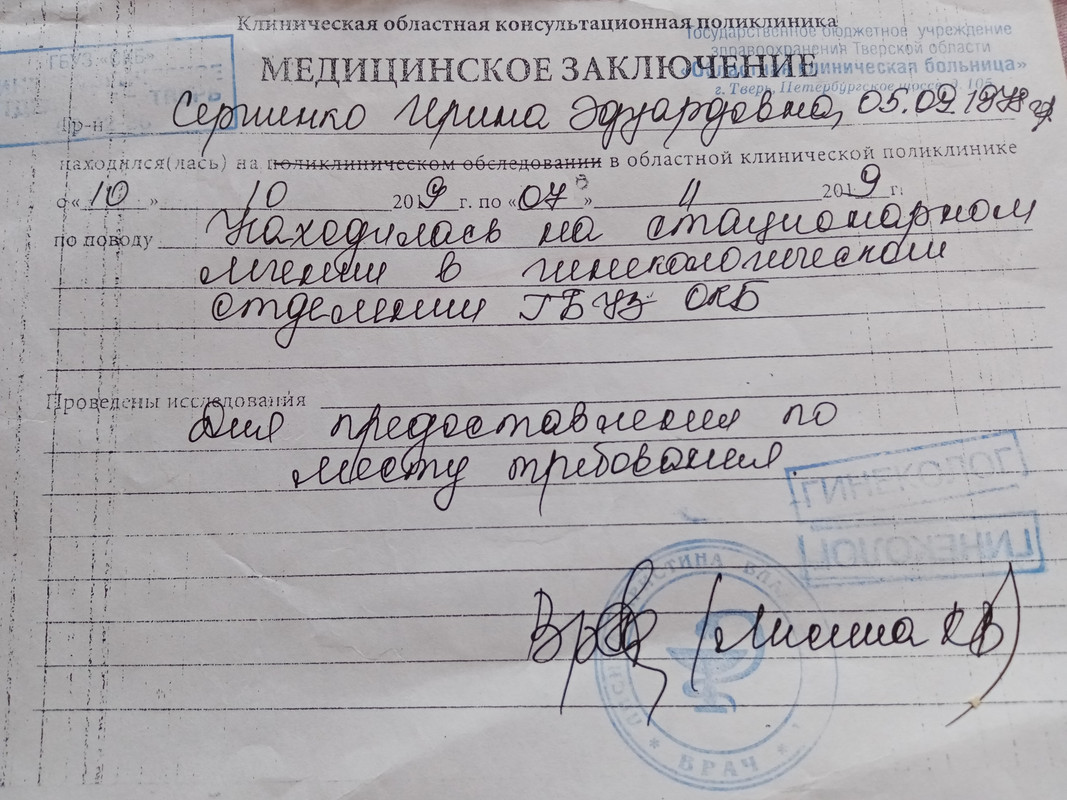 Клиническая областная консультационная поликлиника
Государственное бюджетное учреждение
здравоохранения Тверской области
«Областная клиническая больница»
г. Тверь, Петербургское шоссе, д. 105
ГБУЗ «ОКБ»
МЕДИЦИНСКОЕ ЗАКЛЮЧЕНИЕ
Гр-н Ирина Эдуардовна, 05.02.1978 гр
находился(лась) на поликлиническом обследовании в областной клинической поликлинике
с «10» 10 2019 г. по «07» 11 2019 г.
по поводу Находилась на стационарном
лечении в гинекологическом
отделении ГБУЗ ОКБ
Проведены исследования
Для предоставления по
месту требования.
ГИНЕКОЛОГ
ГИНЕКОЛОГ
Врач
ВРАЧ